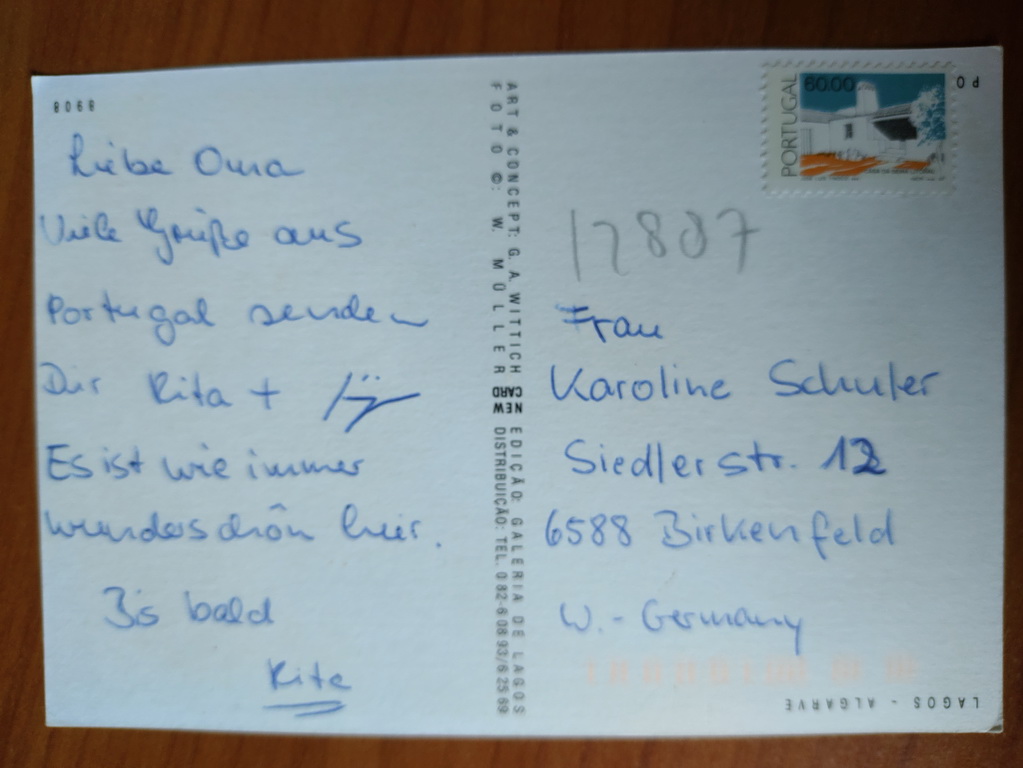 8908
Liebe Oma
Viele Grüße aus
Portugal senden
Dir Rita +
Es ist wie immer
wunderschön hier.
Bis bald
Rita
ART & CONCEPT: G. A. WITTICH NEW CARD EDIÇÃO: GALERIA DE LAGOS
FOTO ©: W. MOLLER DISTRIBUIÇÃO: TEL. 082-60893/62569
PORTUGAL
60.00
PO
17807
Frau
Karoline Schuler
Siedlerstr. 12
6588 Birkenfeld
W.-Germany
LAGOS - ALGARVE